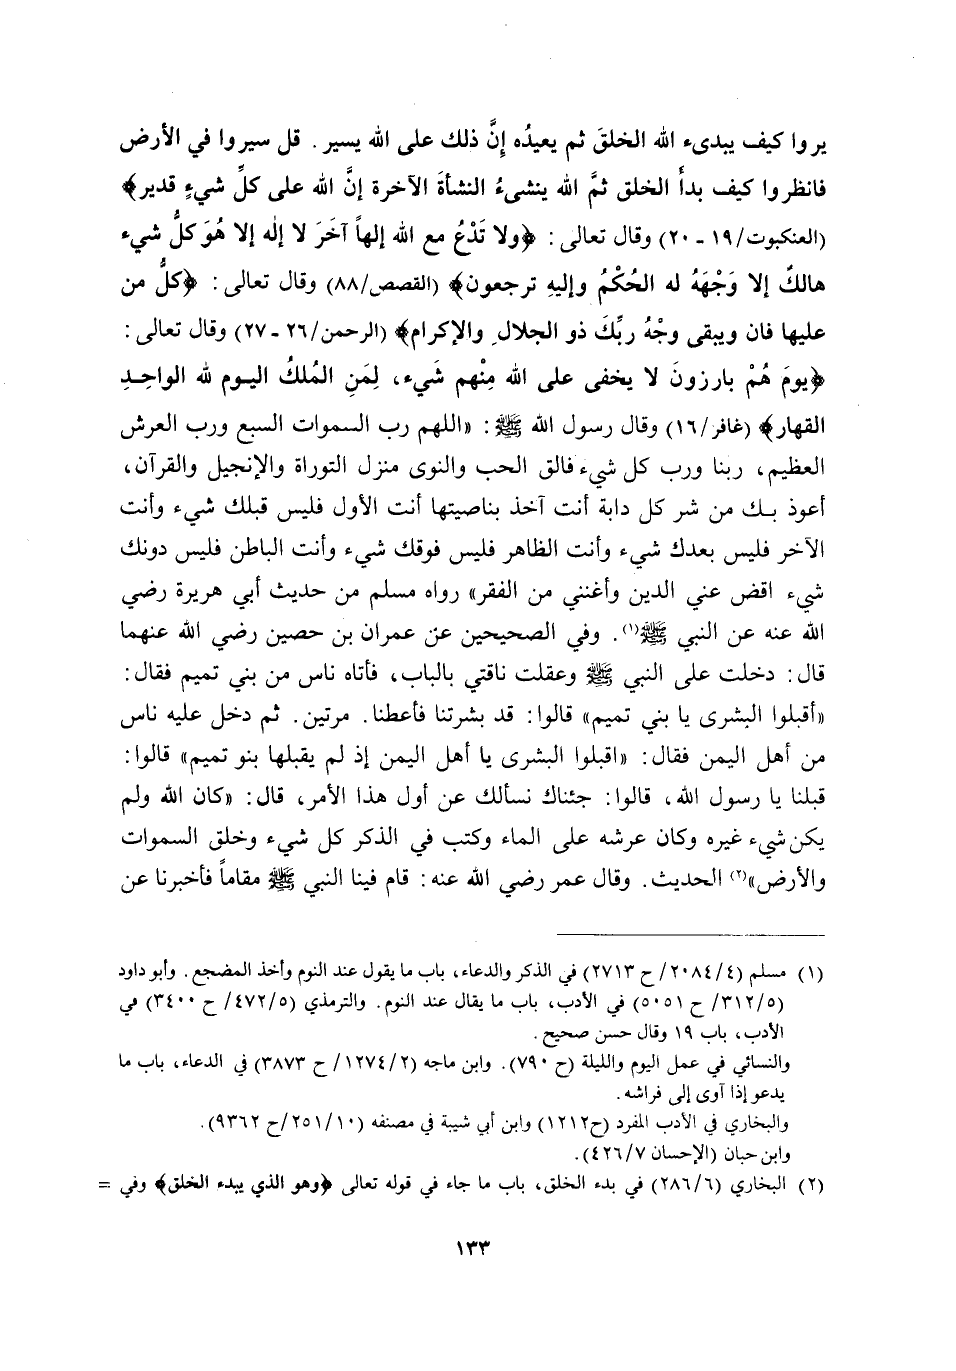 يروا كيف يبدىء الله الخلقَ ثم يعيدُه إنَّ ذلك على الله يسير. قل سيروا في الأرض
فانظروا كيف بدأَ الخلق ثمَّ الله ينشىءُ النشأةَ الآخرة إنَّ الله على كلِّ شيءٍ قدير﴾
(العنكبوت/١٩ - ٢٠) وقال تعالى: ﴿ولا تَدْعُ مع الله إلهاً آخَرَ لا إله إلا هُوَ كلُّ شيء
هالكٌ إلا وَجْهَهُ له الحُكْمُ وإليهِ ترجعون﴾ (القصص/٨٨) وقال تعالى: ﴿كلُّ من
عليها فان ويبقى وجْهُ ربِّكَ ذو الجلالِ والإكرام﴾ (الرحمن/٢٦ - ٢٧) وقال تعالى:
﴿يومَ هُمْ بارزونَ لا يخفى على الله مِنْهم شَيء، لِمَنِ المُلكُ اليوم لله الواحِدِ
القهار﴾ (غافر/١٦) وقال رسول الله ﷺ: «اللهم رب السموات السبع ورب العرش
العظيم، ربنا ورب كل شيء فالق الحب والنوى منزل التوراة والإنجيل والقرآن،
أعوذ بك من شر كل دابة أنت آخذ بناصيتها أنت الأول فليس قبلك شيء وأنت
الآخر فليس بعدك شيء وأنت الظاهر فليس فوقك شيء وأنت الباطن فليس دونك
شيء اقض عني الدين وأغنني من الفقر» رواه مسلم من حديث أبي هريرة رضي
الله عنه عن النبي ﷺ(١). وفي الصحيحين عن عمران بن حصين رضي الله عنهما
قال: دخلت على النبي ﷺ وعقلت ناقتي بالباب، فأتاه ناس من بني تميم فقال:
«أقبلوا البشرى يا بني تميم» قالوا: قد بشرتنا فأعطنا. مرتين. ثم دخل عليه ناس
من أهل اليمن فقال: «اقبلوا البشرى يا أهل اليمن إذ لم يقبلها بنو تميم» قالوا:
قبلنا يا رسول الله، قالوا: جئناك نسألك عن أول هذا الأمر، قال: «كان الله ولم
يكن شيء غيره وكان عرشه على الماء وكتب في الذكر كل شيء وخلق السموات
والأرض»(٢) الحديث. وقال عمر رضي الله عنه: قام فينا النبي ﷺ مقاماً فأخبرنا عن
(١) مسلم (٢٠٨٤/٤/ ح ٢٧١٣) في الذكر والدعاء، باب ما يقول عند النوم وأخذ المضجع. وأبو داود
(٣١٢/٥/ ح ٥٠٥١) في الأدب، باب ما يقال عند النوم. والترمذي (٤٧٢/٥/ ح ٣٤٠٠) في
الأدب، باب ١٩ وقال حسن صحيح.
والنسائي في عمل اليوم والليلة (ح ٧٩٠). وابن ماجه (١٢٧٤/٢/ ح ٣٨٧٣) في الدعاء، باب ما
يدعو إذا آوى إلى فراشه.
والبخاري في الأدب المفرد (ح١٢١٢) وابن أبي شيبة في مصنفه (٢٥١/١٠/ح ٩٣٦٢).
وابن حبان (الإحسان ٤٢٦/٧).
(٢) البخاري (٢٨٦/٦) في بدء الخلق، باب ما جاء في قوله تعالى ﴿وهو الذي يبدء الخلق﴾ وفي =
١٣٣